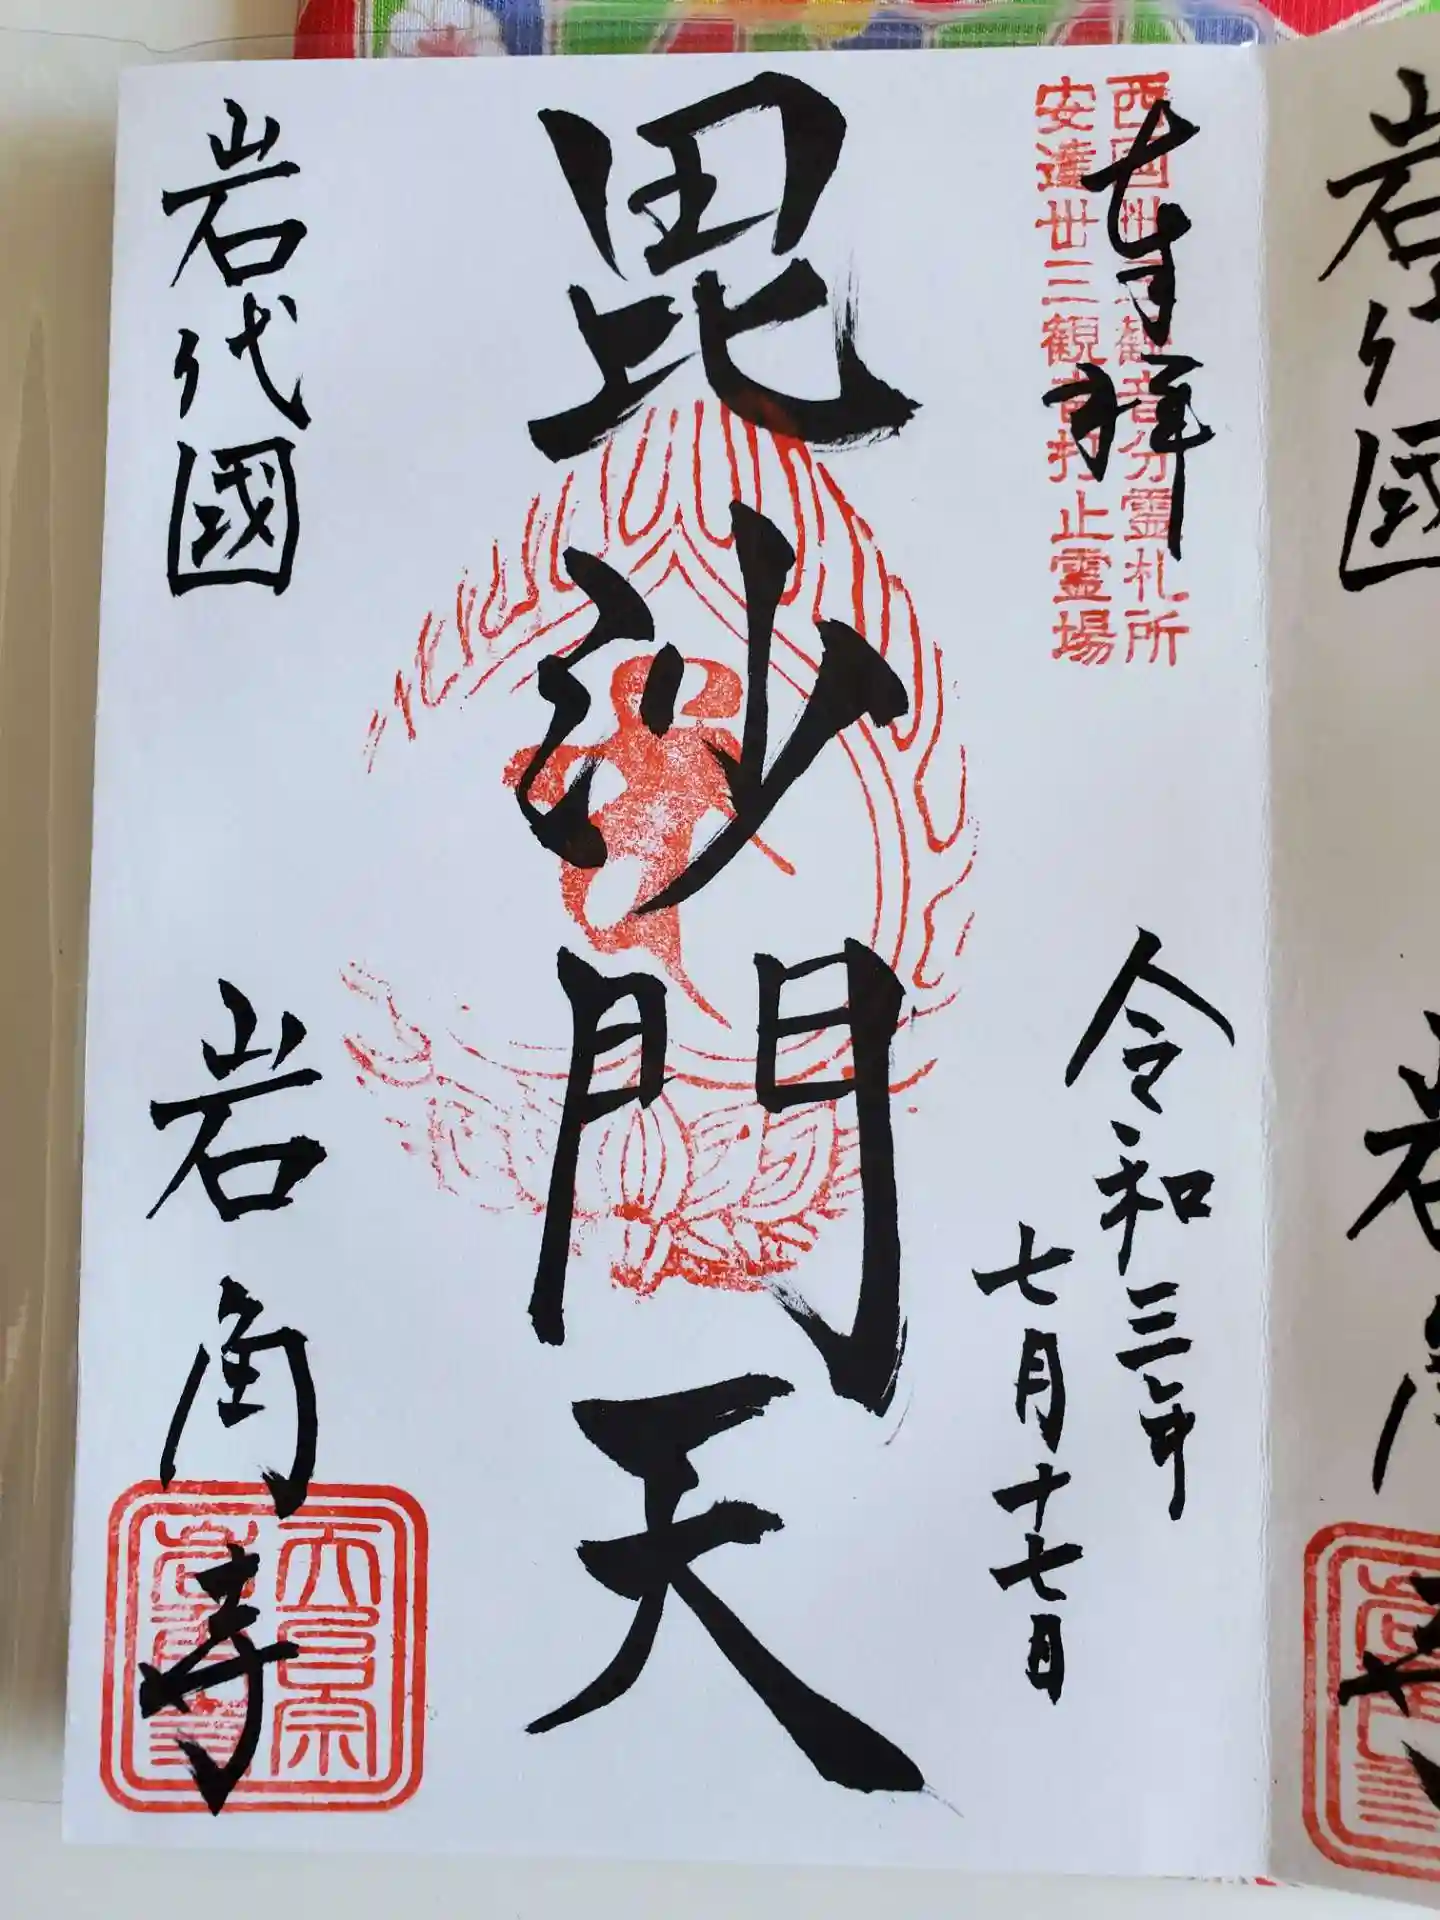 西国卅三観音分霊札所
安達卅三観音打止霊場
奉拝
令和三年
七月十七日
毘沙門天
岩代國
岩角寺
天台宗
岩角寺